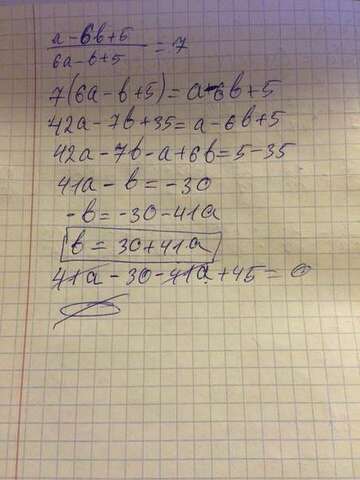 a-6b+5
6a-b+5 = 7
7(6a-b+5)= a-6b+5
42a-7b+35= a-6b+5
42a-7b-a+6b=5-35
41a-b=-30
-b=-30-41a
b = 30+41a
41a-30-41a+45=0